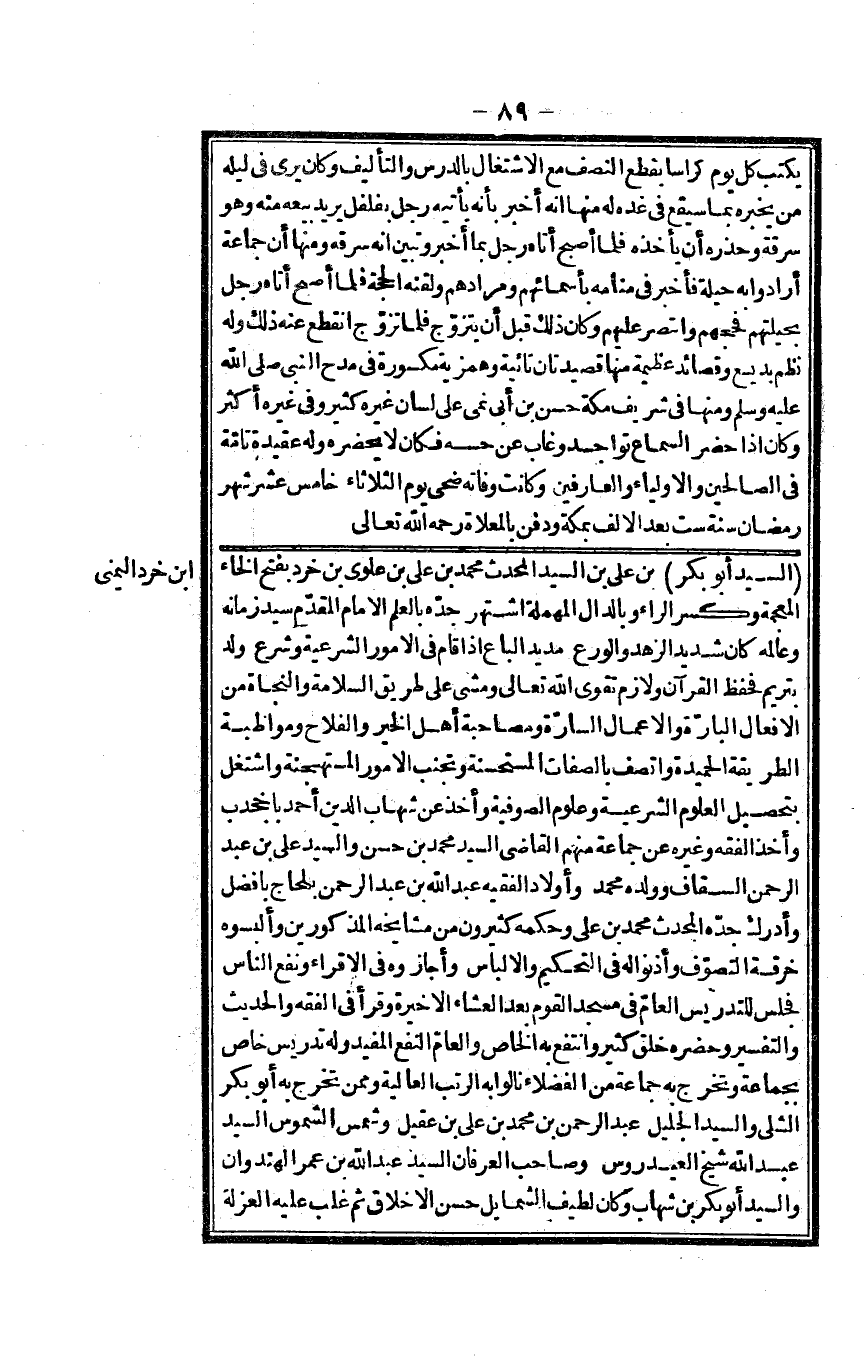 - ٨٩ -
يكتب كل يوم كراسا بقطع النصف مع الاشتغال بالدرس والتأليف وكان يرى فى ليله
من يخبره بما سيقع فى غده له منها انه أخبر بأنه يأتيه رجل بفلفل يريد بيعه منه وهو
سرقة وحذره أن يأخذه فلما أصبح أتاه رجل بما أخبر وتبين انه سرقه ومنها أن جماعة
أرادوا به حيلة فأخبر فى منامه بأسمائهم ومرادهم ولقنه الحجة فلما أصبح أتاه رجل
بحيلتهم فحجهم وانتصر عليهم وكان ذلك قبل أن يتزوّج فلما تزوّج انقطع عنه ذلك وله
نظم بديع وقصائد عظيمة منها قصيدتان تائية وهمزية مكسورة فى مدح النبى صلى الله
عليه وسلم ومنها فى شريف مكة حسن بن أبى نمى على لسان غيره كثير وفى غيره أكثر
وكان اذا حضر السماع تواجد وغاب عن حسه فكان لا يحضره وله عقيدة تامّة
فى الصالحين والاولياء والعارفين وكانت وفاته ضحى يوم الثلاثاء خامس عشر شهر
رمضان سنة ست بعد الالف بمكة ودفن بالمعلاة رحمه الله تعالى
ابن خرد اليمنى
(السيد أبو بكر) بن على بن السيد المحدث محمد بن على بن علوى بن خرد بفتح الخاء
المعجمة وكسر الراء وبالدال المهملة اشتهر جدّه بالعلم الامام المقدّم سيد زمانه
وعالمه كان شديد الزهد والورع مديد الباع اذا قام فى الامور الشرعية وشرع ولد
بتريم فحفظ القرآن ولازم تقوى الله تعالى ومشى على طريق السلامة والنجاة من
الافعال البارّة والاعمال السارّة ومصاحبة أهل الخير والفلاح ومواظبة
الطريقة الحميدة واتصف بالصفات المستحسنة وتجنب الامور المستهجنة واشتغل
بتحصيل العلوم الشرعية وعلوم الصوفية وأخذ عن شهاب الدين أحمد باجحدب
وأخذ الفقه وغيره عن جماعة منهم القاضى السيد محمد بن حسن والسيد على بن عبد
الرحمن السقاف وولده محمد وأولاد الفقيه عبد الله بن عبد الرحمن بلحاج بافضل
وأدرك جدّه المحدث محمد بن على وحكمه كثيرون من مشايخه المذكورين وألبسوه
خرقة التصوّف وأذنوا له فى التحكيم والالباس وأجازوه فى الاقراء ونفع الناس
فجلس للتدريس العامّ فى مسجد القوم بعد العشاء الاخيرة وقرأ فى الفقه والحديث
والتفسير وحضره خلق كثير وانتفع به الخاص والعامّ النفع المفيد وله تدريس خاص
بجماعة وتخرج به جماعة من الفضلاء نالوا به الرتب العالية وممن تخرج به أبو بكر
الشلى والسيد الجليل عبد الرحمن بن محمد بن على بن عقيل وشمس الشموس السيد
عبد الله شيخ العيدروس وصاحب العرفان السيد عبد الله بن عمر الهندوان
والسيد أبو بكر بن شهاب وكان لطيف الشمايل حسن الاخلاق ثم غلب عليه العزلة